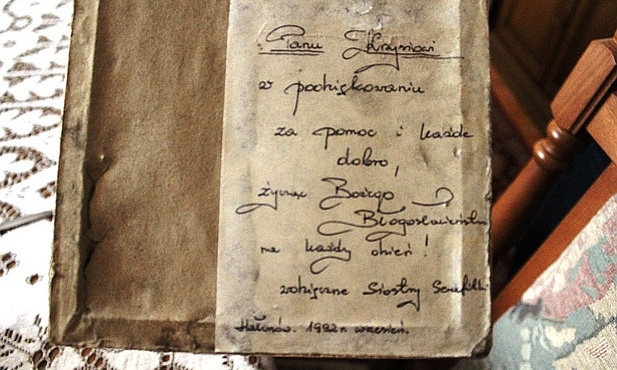 Panu Krzysiowi
w podziękowaniu
za pomoc i każde
dobro,
życząc Bożego
Błogosławieństwa
na każdy dzień!
wdzięczne Siostry Serafitki
Halinów. 1992 r. wrzesień.